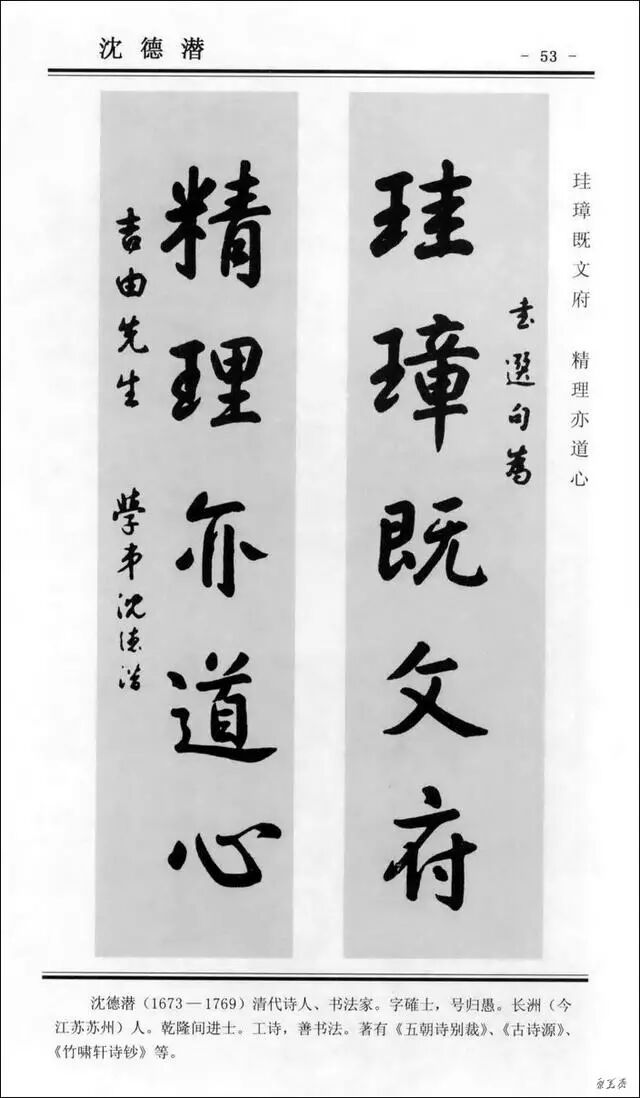 沈德潜
- 53 -
珪璋既文府 精理亦道心
书选句为
珪璋既文府
精理亦道心
吉由先生 学弟沈德潜
沈德潜（1673—1769）清代诗人、书法家。字確士，号归愚。长洲（今
江苏苏州）人。乾隆间进士。工诗，善书法。著有《五朝诗别裁》、《古诗源》、
《竹啸轩诗钞》等。